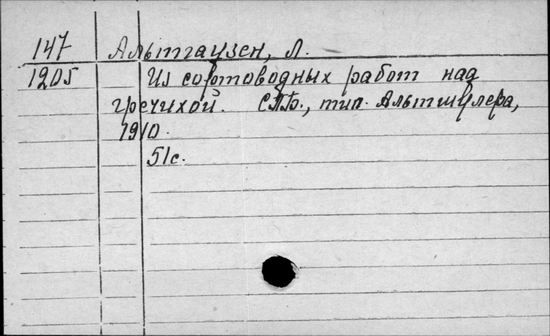 147 Альтгаузен, Л.
1205 Из сортоводных работ над
гречихой. СПб., тип. Альтшулера,
1910.
51с.